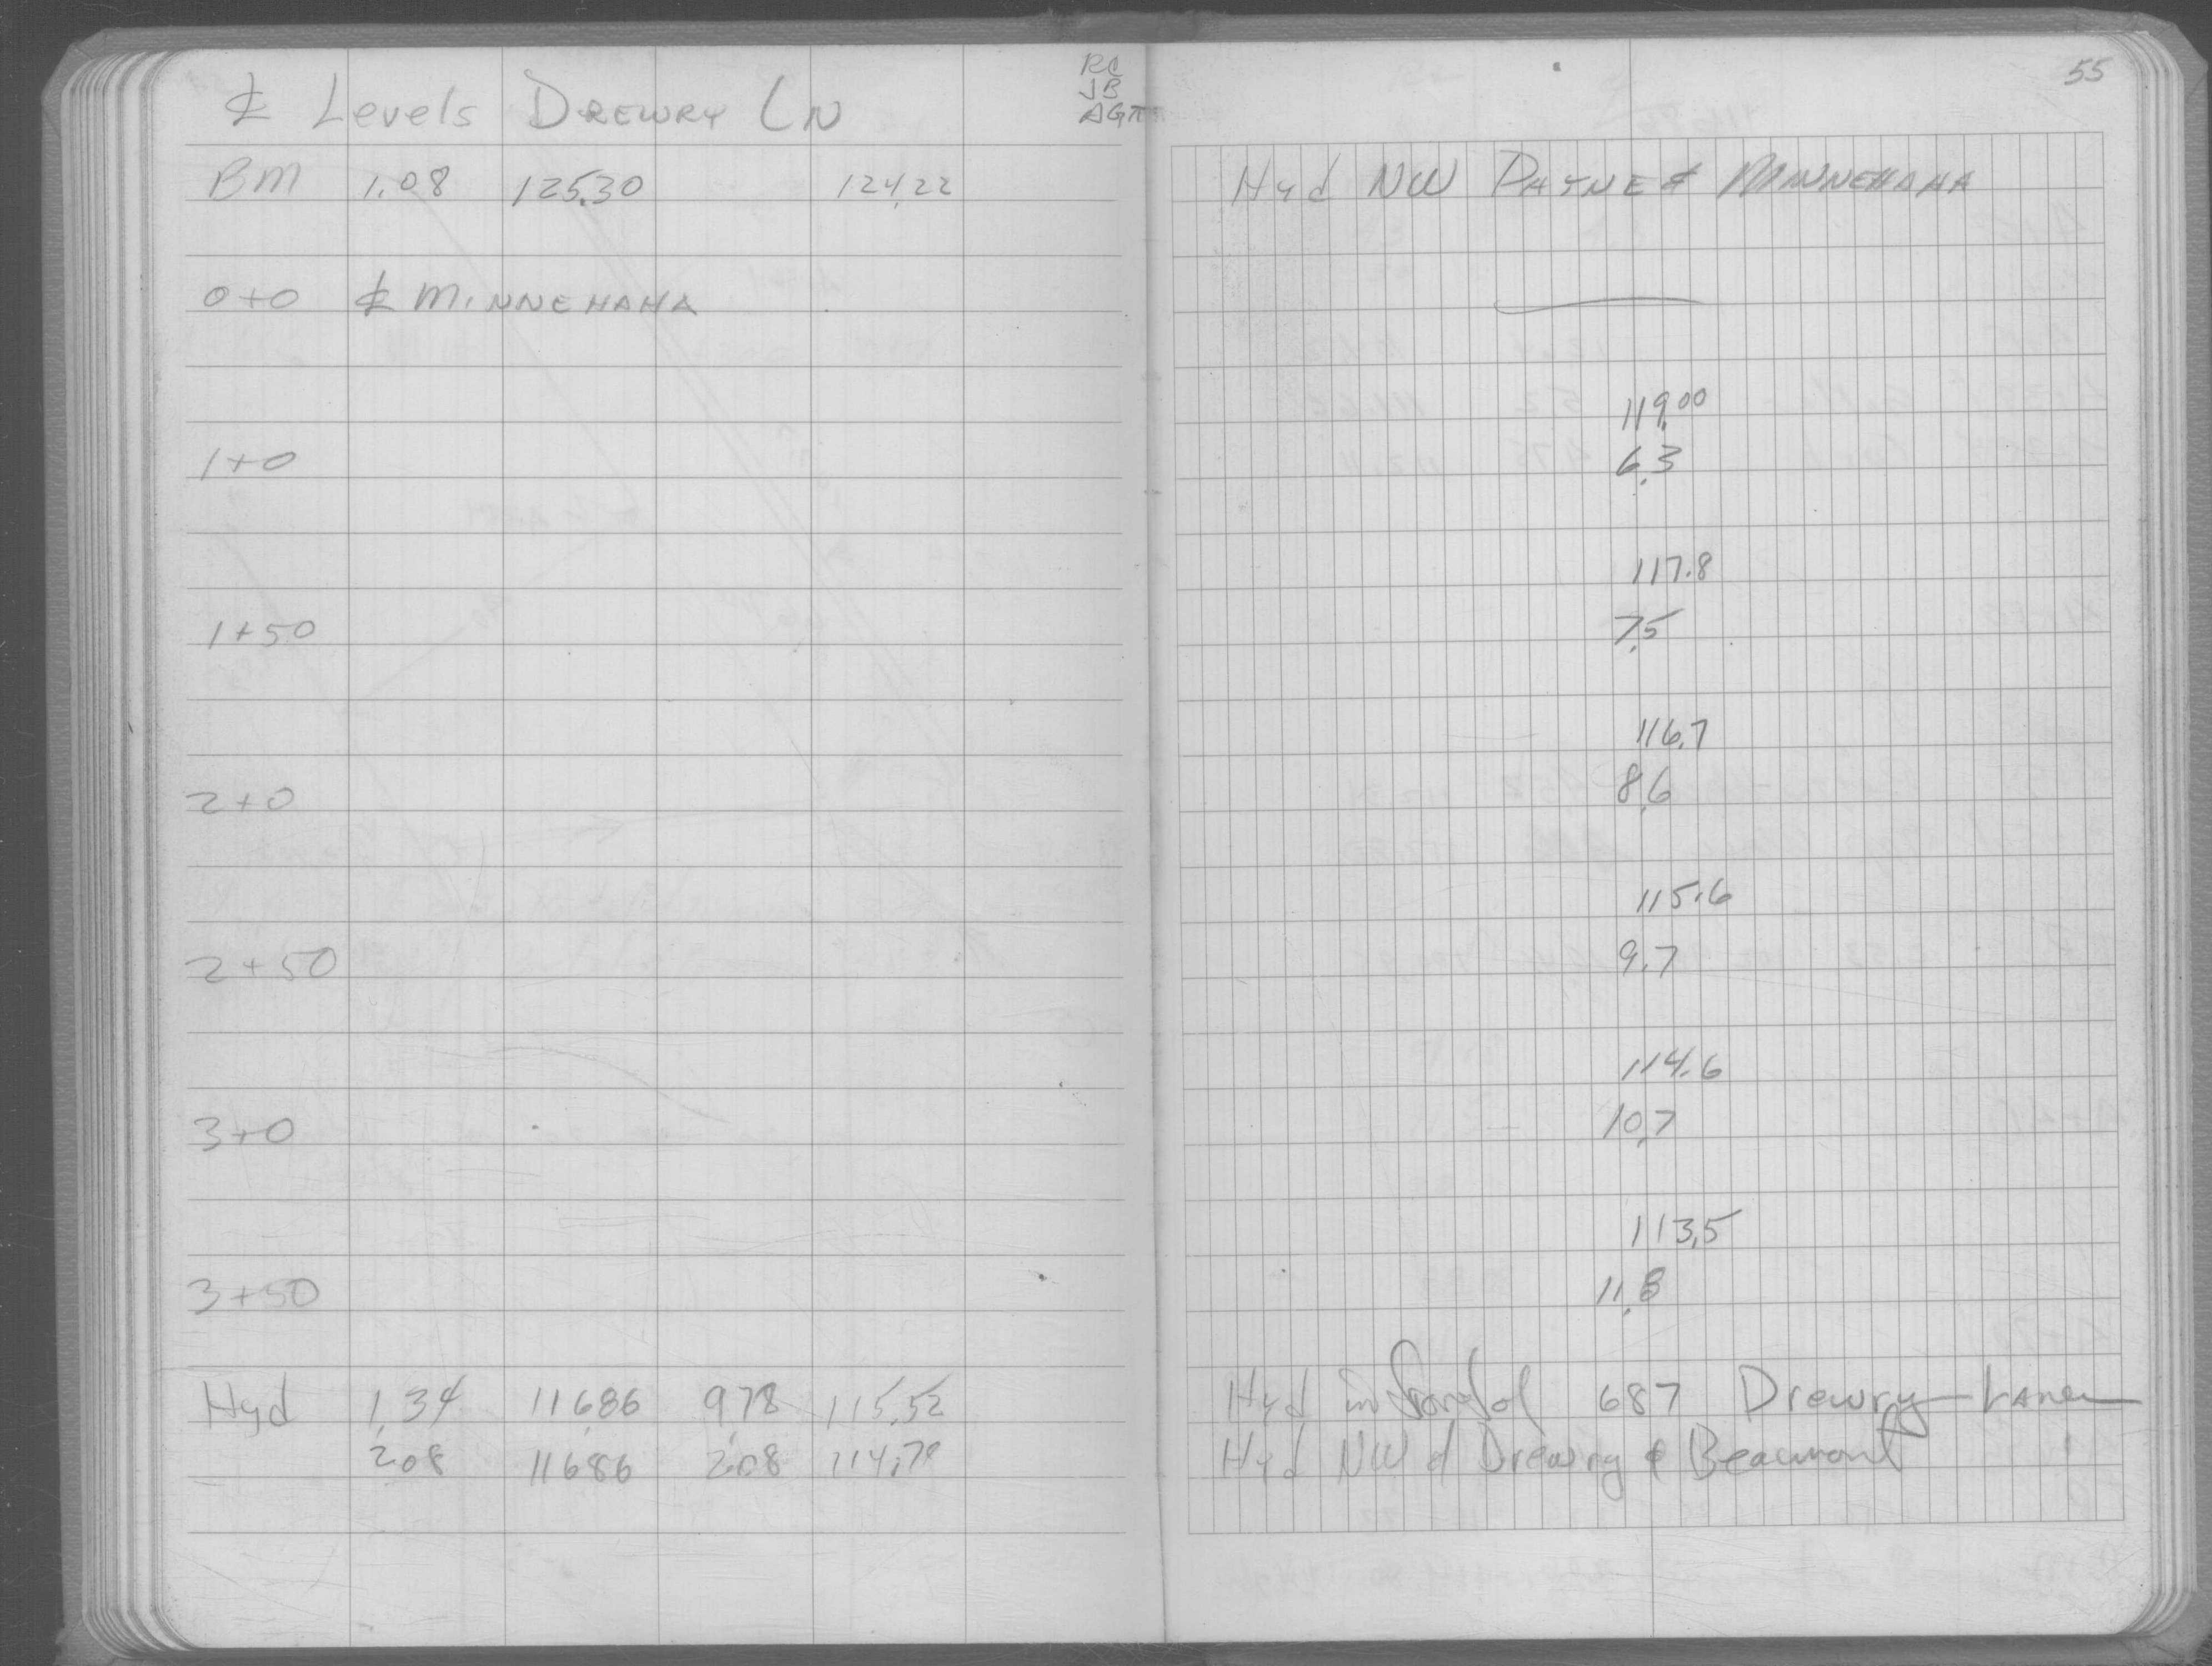 ℄ Levels Drewry Ln
RC
JB
AG
55
BM 1.08 125.30 124.22 Hyd NW Payne & Minnehaha
0+0 ℄ Minnehaha
119.00
1+0 6.3
117.8
1+50 7.5
116.7
2+0 8.6
115.6
2+50 9.7
114.6
3+0 10.7
113.5
3+50 11.8
Hyd 1.34 116.86 9.78 115.52 Hyd in front of 687 Drewry Lane
2.08 116.86 2.08 114.78 Hyd NW of Drewry & Beaumont